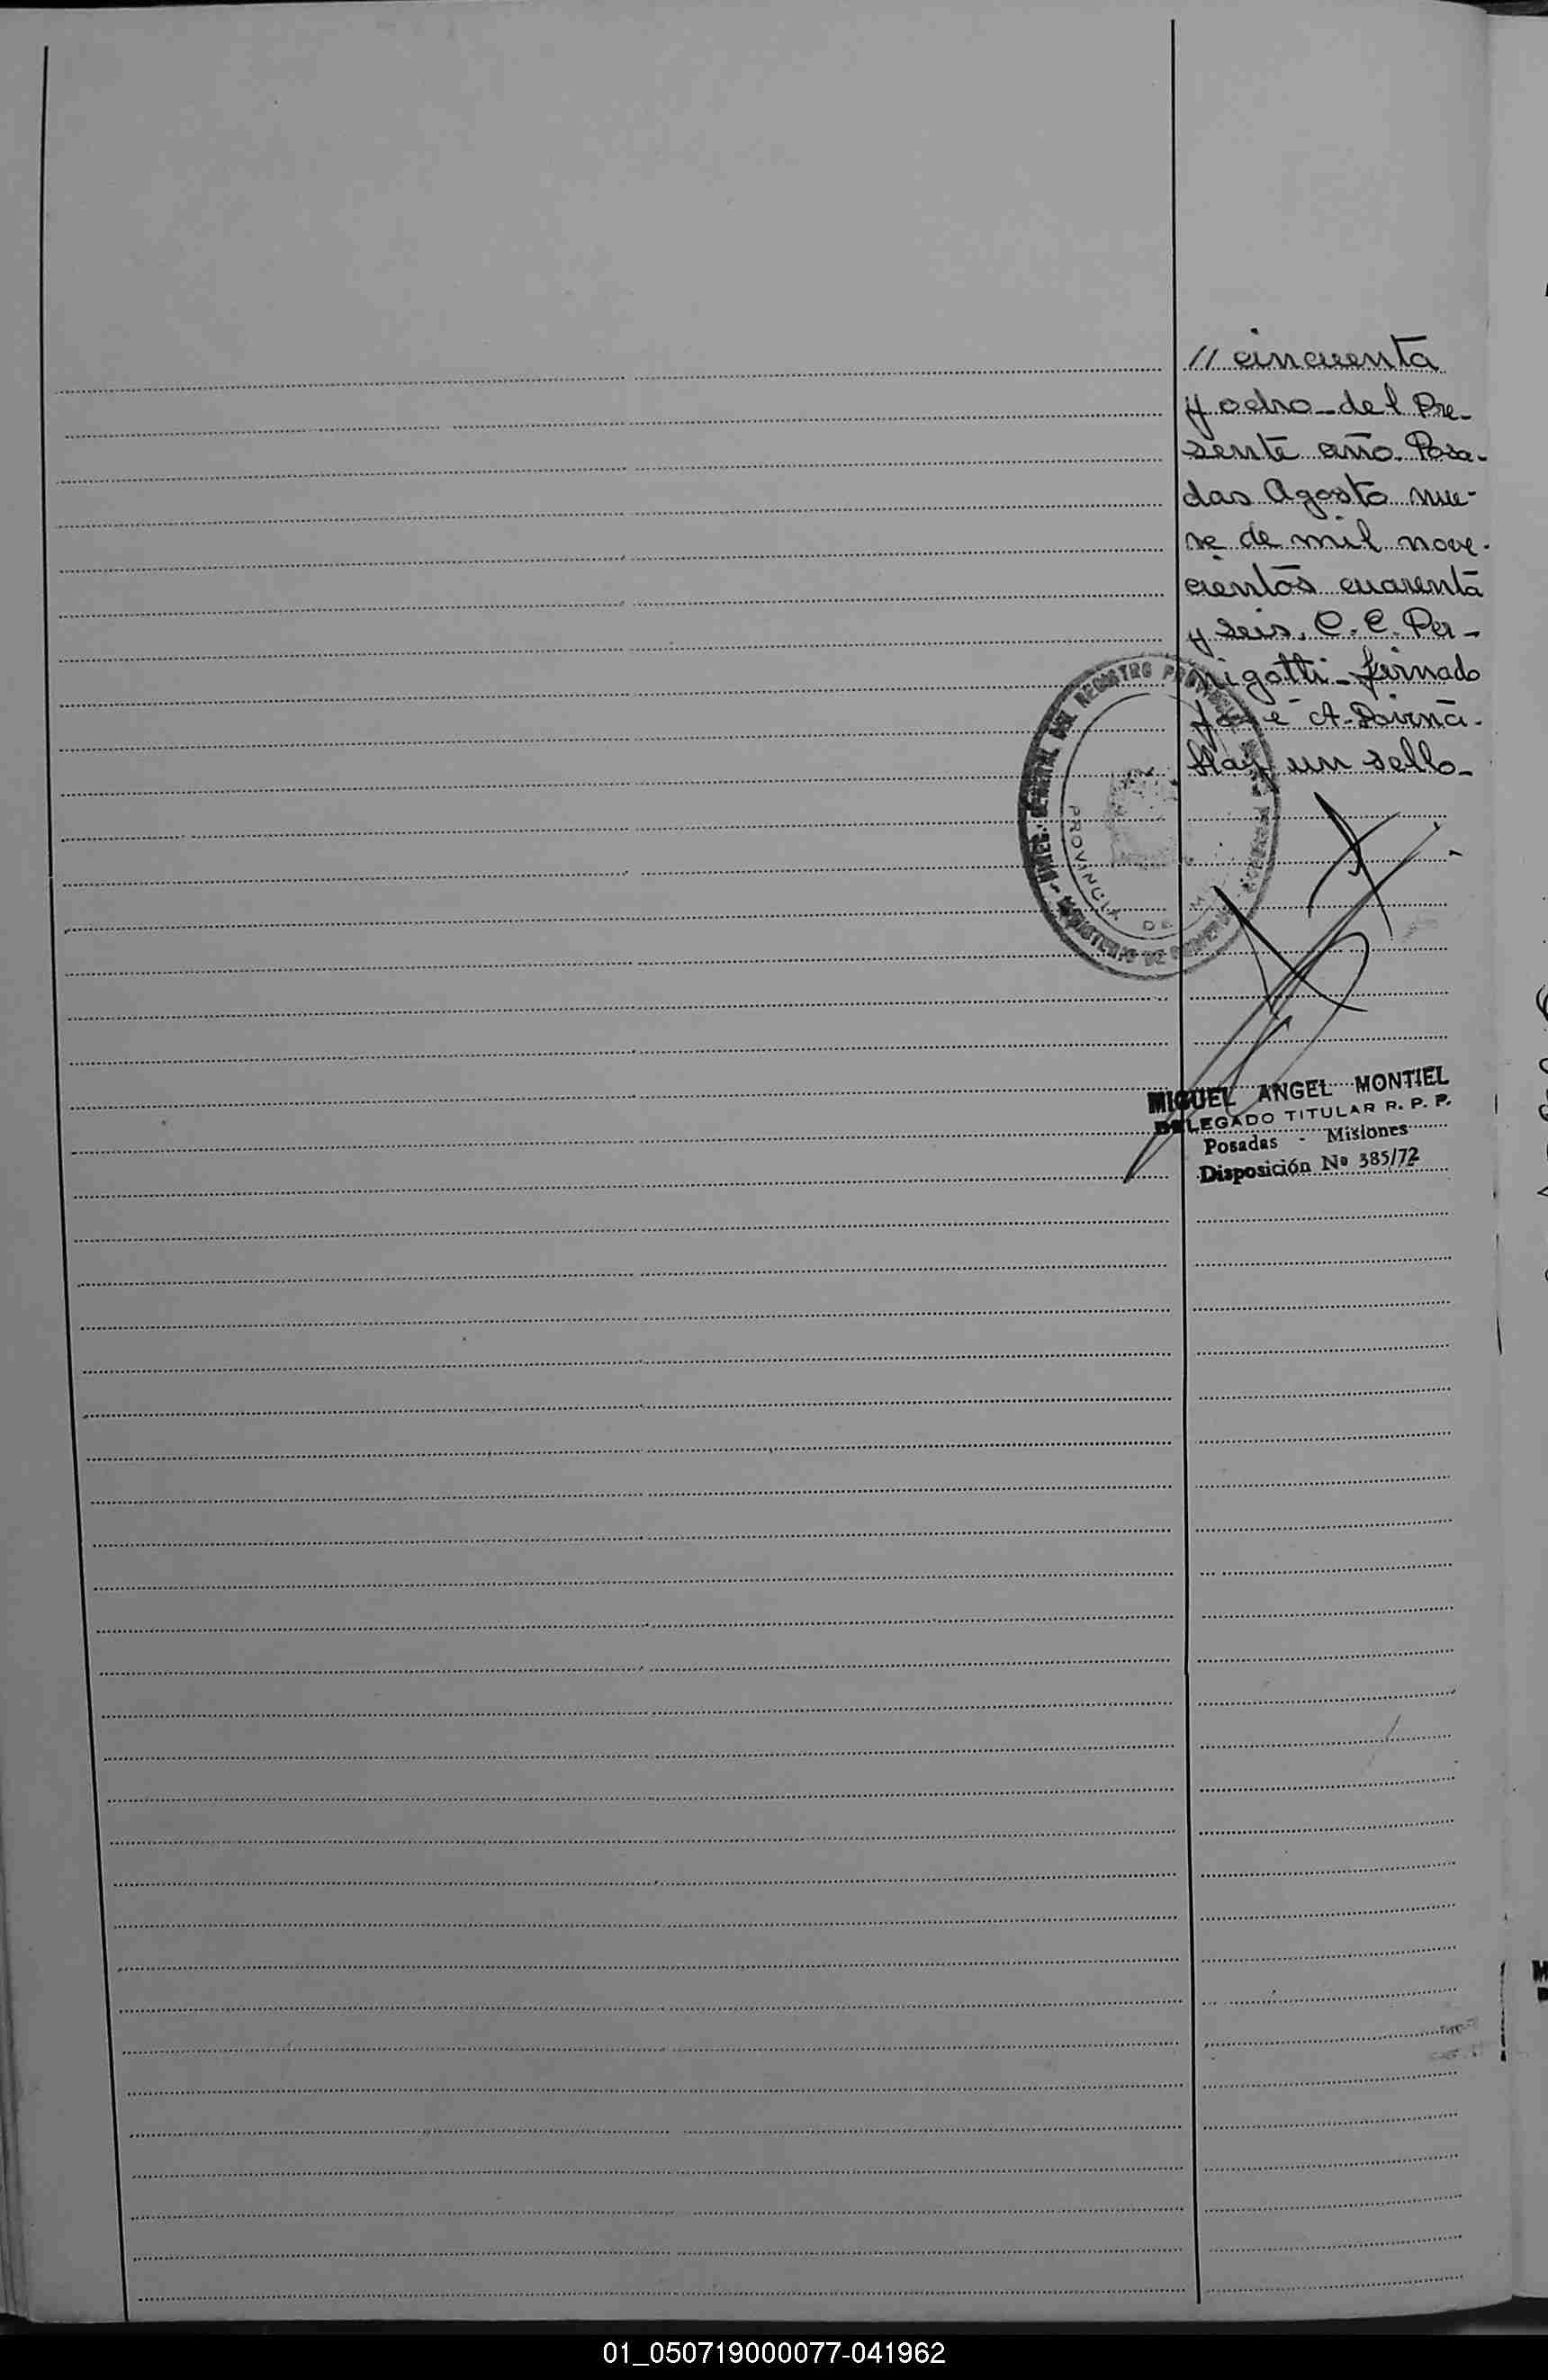 // cincuenta
y ocho - del Pre-
sente año. Posa-
das Agosto nue-
ve de mil nove-
cientos cuarenta
y seis. C. E. Per-
nigotti - firmado
José A.
Hay un sello -
DIREC. GENERAL DEL REGISTRO
MINISTERIO DE GOBIERNO
PROVINCIA DE
MIGUEL ANGEL MONTIEL
DELEGADO TITULAR R. P. P.
Posadas - Misiones
Disposición Nº 385/72
01_050719000077-041962